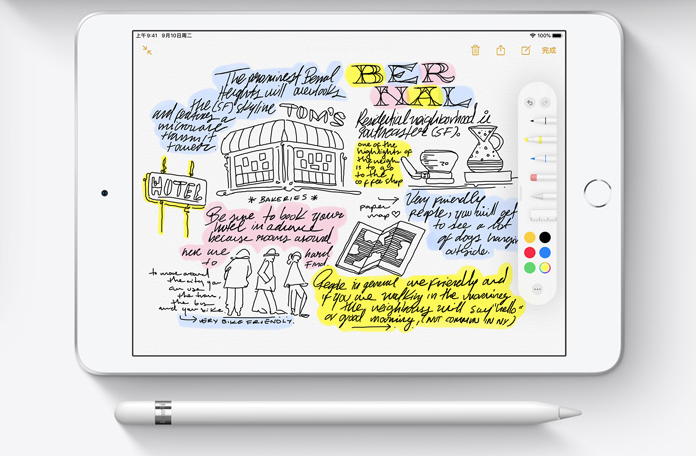 上午9:41 9月10日周二
100%
完成
The prominest Bernal
Heights will overlooks
the (SF) skyline
and features a
microwave
transmit
tower
BER
NAL
TOM'S
Residential neighborhood is
southeastern (SF).
one of the
highlights of
the neigh
is to go
to the
coffee shop
HOTEL
* BAKERIES *
paper
map
Very friendly
people, you will get
to see a lot
of dogs hangin
outside.
Be sure to book your
hotel in advance
because rooms around
here are hard
to find.
to move around
the city you
can use
the tram,
the bus
and your bike
VERY BIKE FRIENDLY.
People in general are friendly and
if you are walking in the morning
the neighbors will say "hello"
or good morning, (NOT COMMON IN NY)